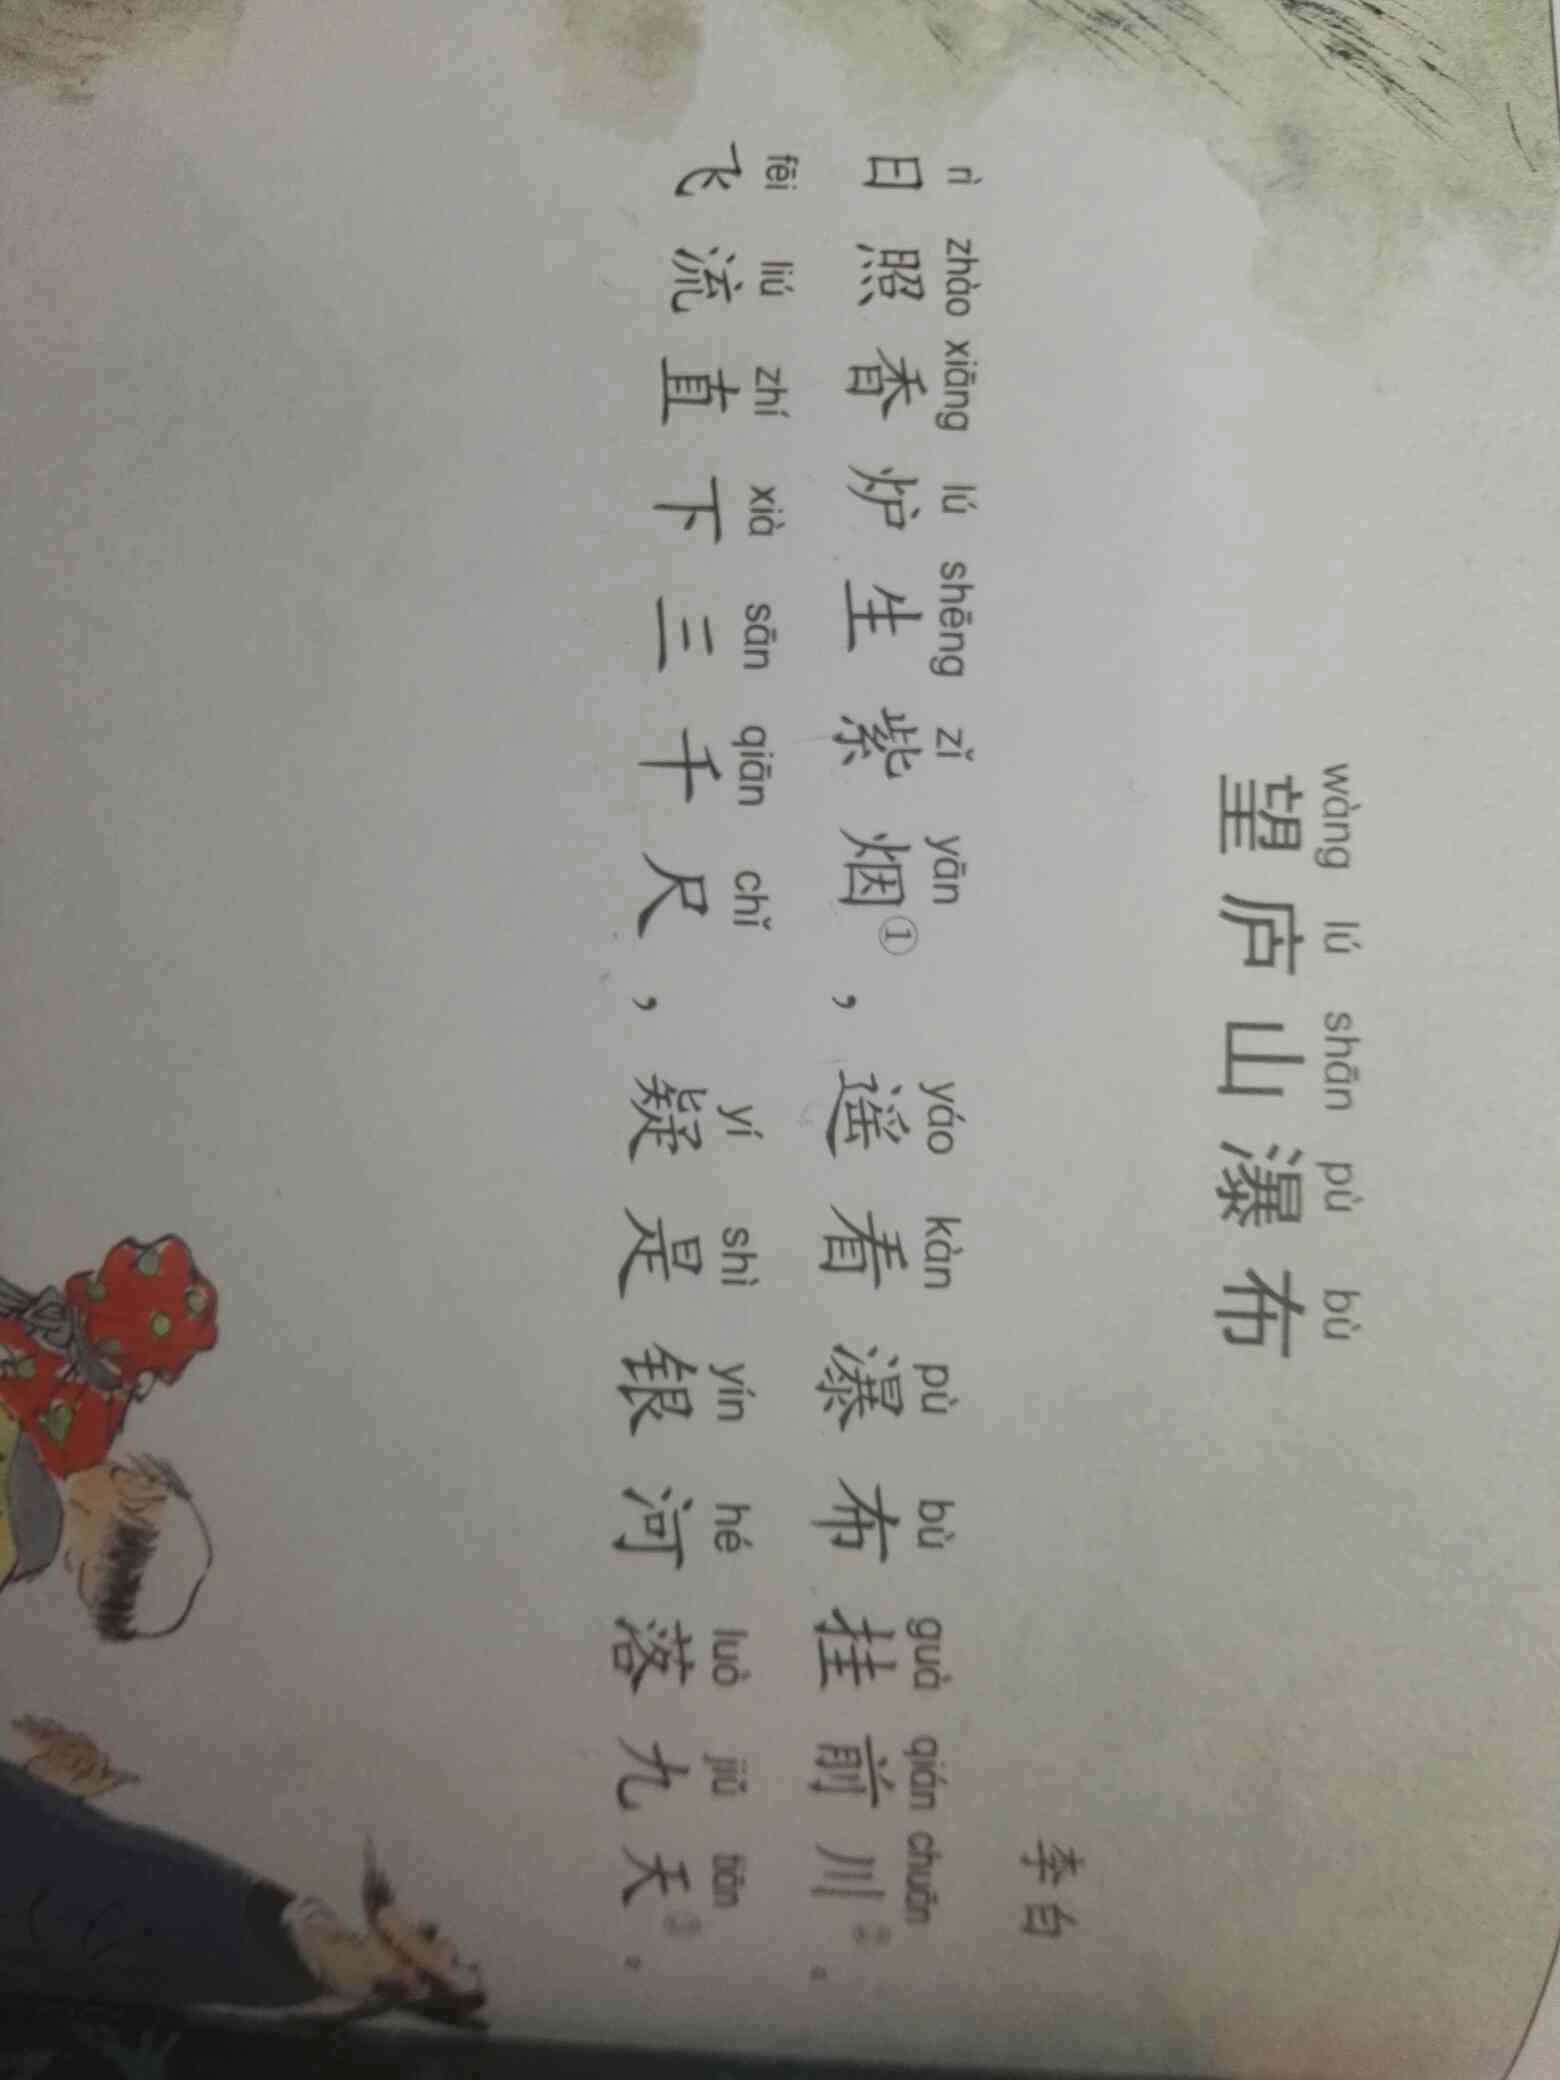 wàng lú shān pù bù
望庐山瀑布
李白
rì zhào xiāng lú shēng zǐ yān yáo kàn pù bù guà qián chuān
日照香炉生紫烟①，遥看瀑布挂前川②。
fēi liú zhí xià sān qiān chǐ yí shì yín hé luò jiǔ tiān
飞流直下三千尺，疑是银河落九天③。